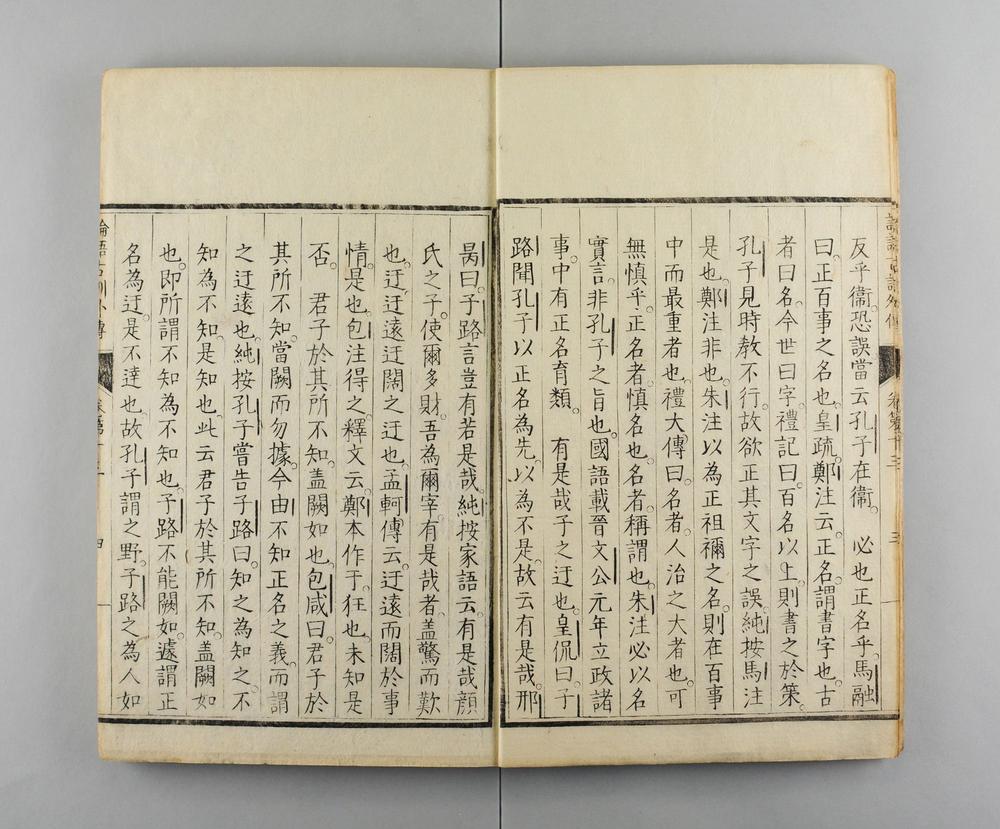 反乎衞。恐誤當云孔子在衞。　必也正名乎。馬融
曰。正百事之名也。皇疏。鄭注云。正名。謂書字也。古
者曰名。今世曰字。禮記曰。百名以上。則書之於策。
孔子見時教不行。故欲正其文字之誤。純按馬注
是也。鄭注非也。朱注以為正祖禰之名。則在百事
中而最重者也。禮大傳曰。名者。人治之大者也。可
無慎乎。正名者慎名也。名者。稱謂也。朱注必以名
實言。非孔子之旨也。國語載晉文公元年立政諸
事。中有正名育類。　有是哉子之迂也。皇侃曰。子
路聞孔子以正名為先。以為不是。故云有是哉。邢
昺曰。子路言豈有若是哉。純按家語云。有是哉顏
氏之子。使爾多財。吾為爾宰。有是哉者。蓋驚而歎
也。迂。迂遠迂闊之迂也。孟軻傳云。迂遠而闊於事
情。是也。包注得之。釋文云。鄭本作于。狂也。未知是
否。　君子於其所不知。蓋闕如也。包咸曰。君子於
其所不知。當闕而勿據。今由不知正名之義。而謂
之迂遠也。純按孔子嘗告子路曰。知之為知之。不
知為不知。是知也。此云君子於其所不知。蓋闕如
也。即所謂不知為不知也。子路不能闕如。遽謂正
名為迂。是不達也。故孔子謂之野。子路之為人如